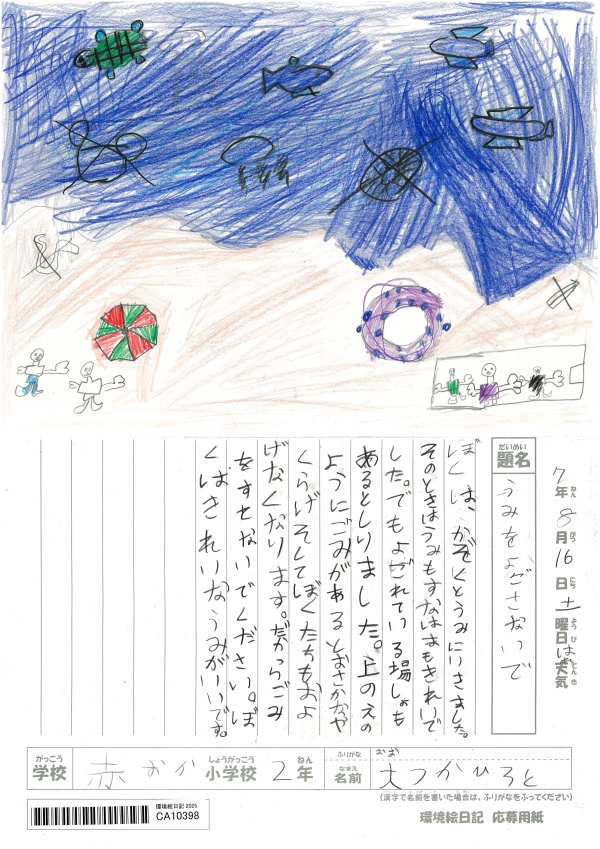 7年8月16日土曜日天気は
ねん がつ にち ようび てんき
だいめい
題名
うみをよごさないで
ぼくは、かぞくとうみにいきました。
そのときはうみもすなはまもきれいで
した。でもよごれている場しょも
あるとしりました。上のえの
ようにごみがあるとおさかなや
くらげそしてぼくたちもおよ
げなくなります。だからごみ
をすてないでください。ぼ
くはきれいなうみがいいです。
がっこう しょうがっこう ねん ふりがな おお
学校 赤おか 小学校 2年 なまえ 名前 大つかひろと
(漢字で名前を書いた場合は、ふりがなをふってください)
環境絵日記 2025
CA10398
環境絵日記 応募用紙